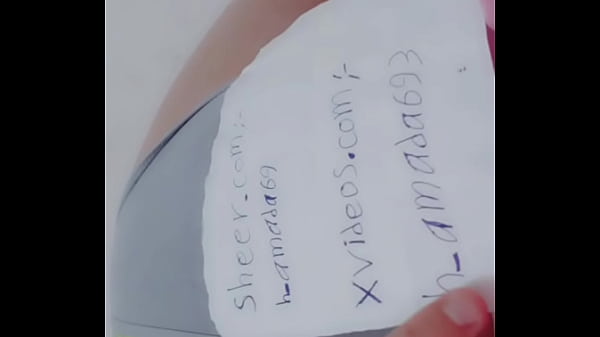 sheer.com:-
h_amada69
xvideos.com:-
h_amada693